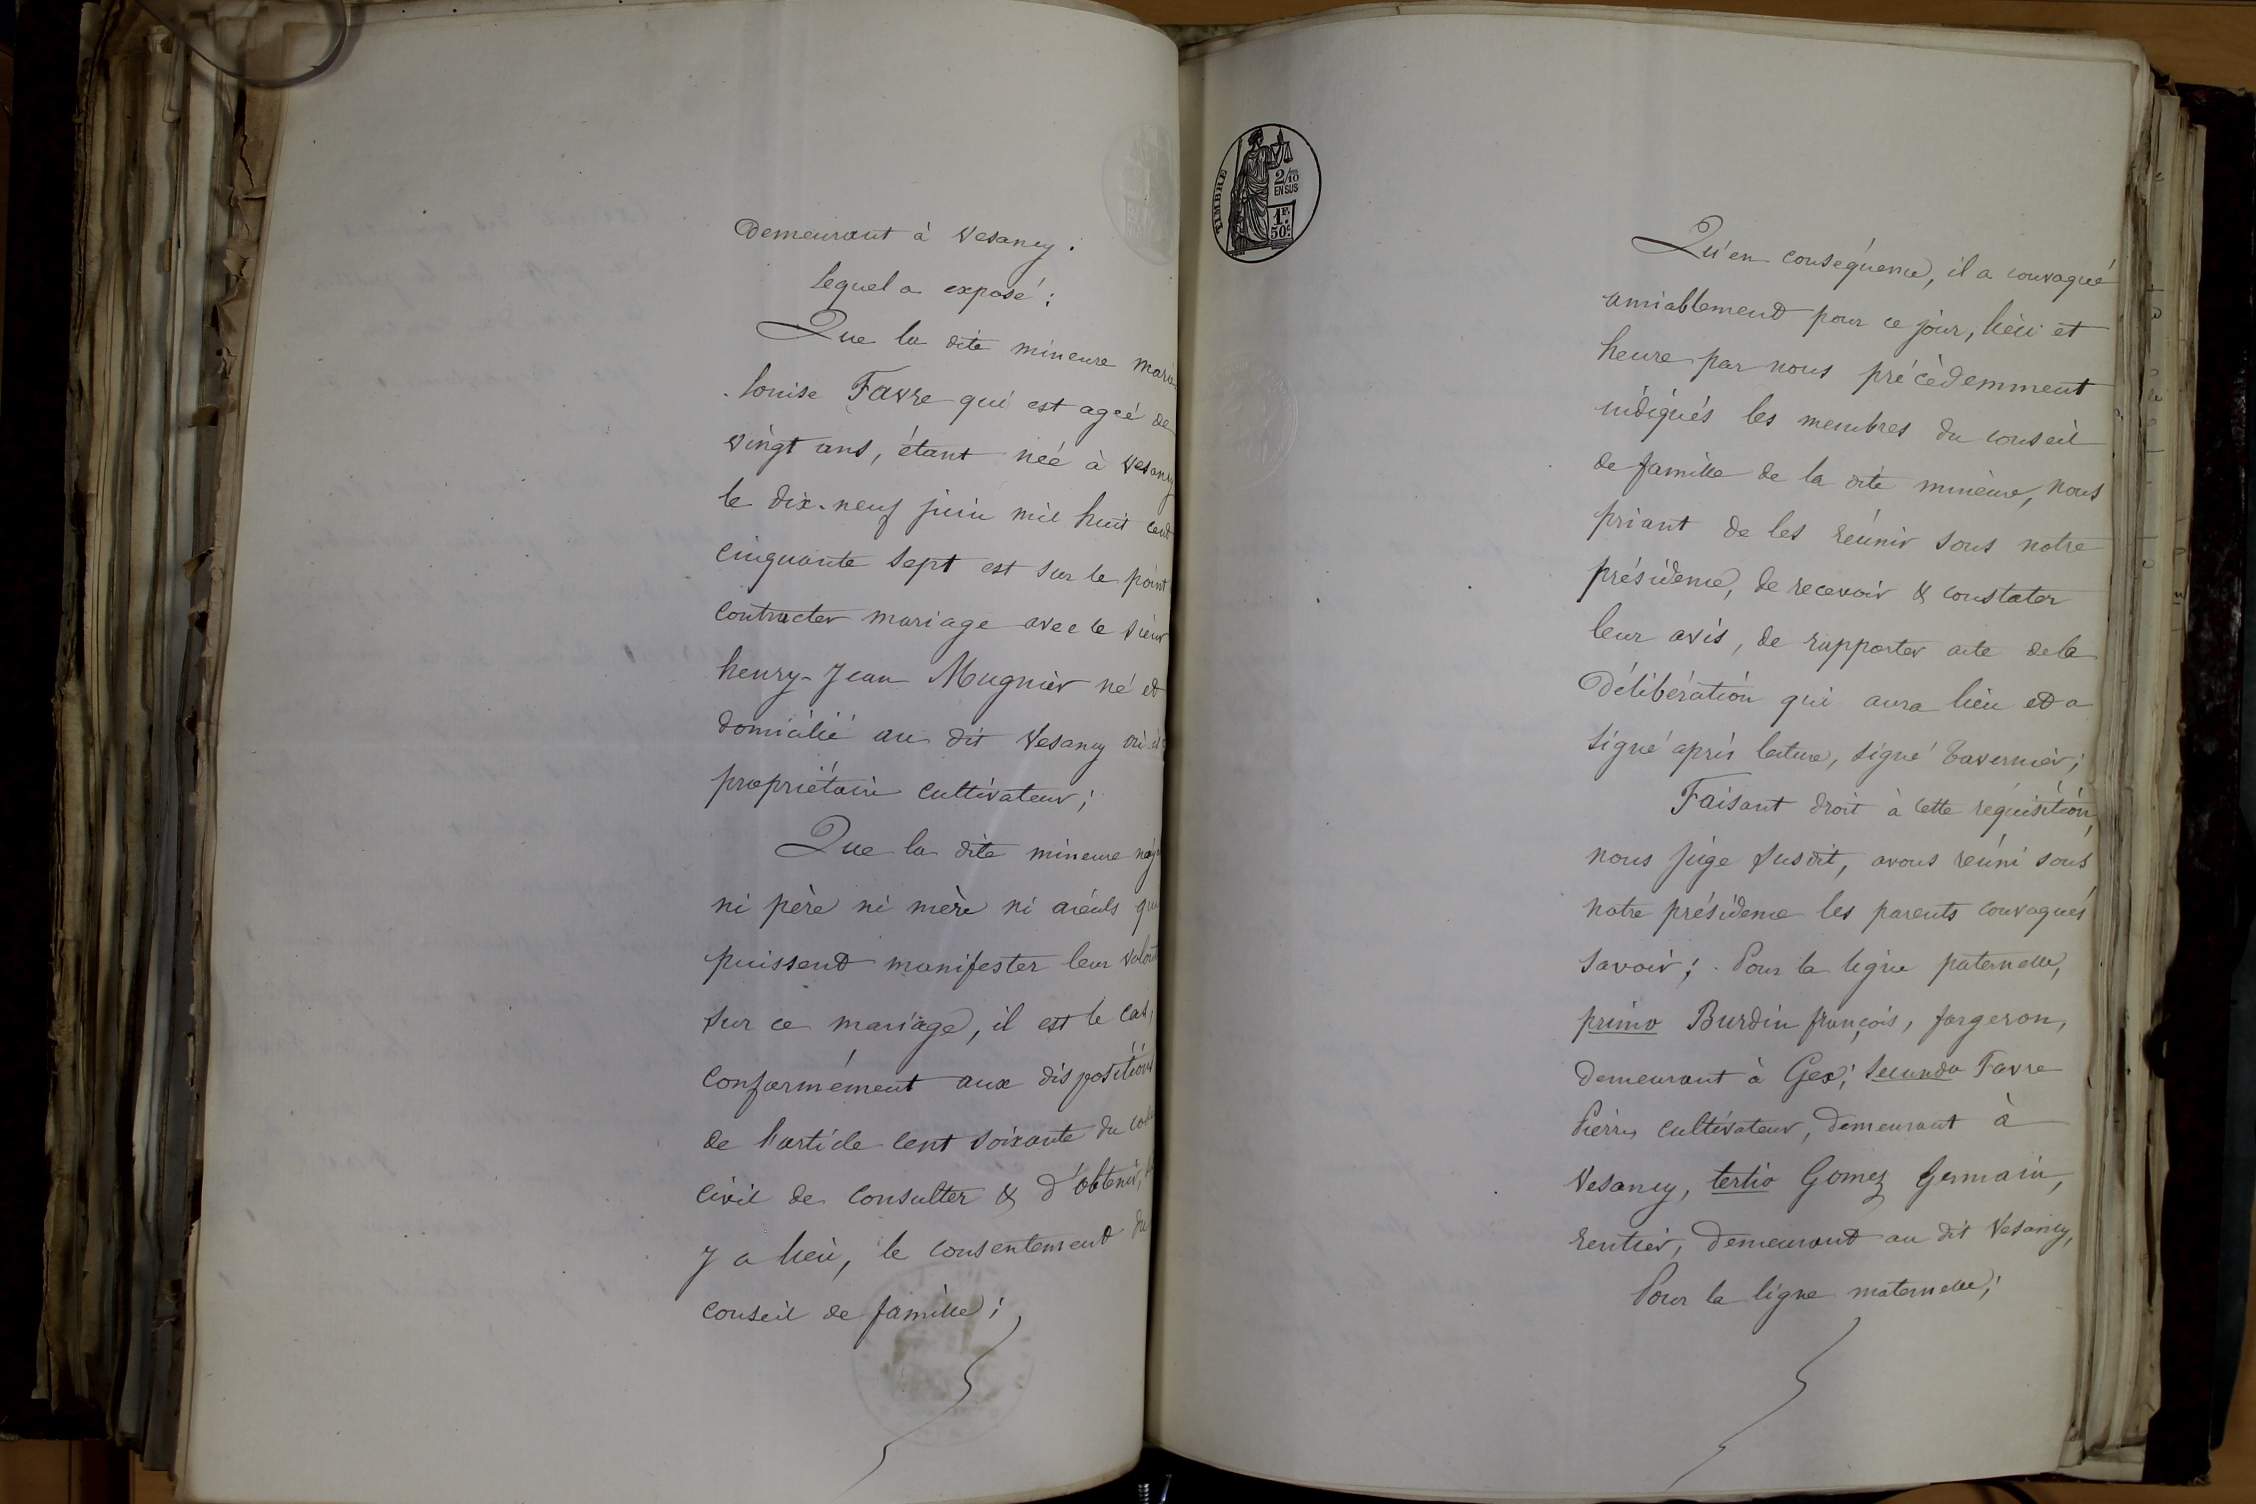 Demeurant à Vesancy.
Lequel a exposé :
Que la dite mineure Marie
-Louise Favre qui est ageé de
vingt ans, étant neé à Vesancy
le dix-neuf juin mil huit cent
cinquante sept est sur le point
contracter mariage avec le sieur
henry-Jean Mugnier né et
domicilié au dit Vesancy où il
propriétaire cultivateur ;
Que la dite mineure
ni père ni mère ni aïeuls qui
puissent manifester leur volonté
sur ce mariage, il est le cas,
conformément aux dispositions
de l'article cent soixante du code
civil de consulter & d'obtenir,
y a lieu, le consentement du
conseil de famille ;
TIMBRE
2/10
EN SUS
1F.
50c.
Qu'en conséquence, il a convoqué
amiablement pour ce jour, lieu et
heure par nous précèdemment
indiqués les membres du conseil
de famille de la dite mineure, nous
priant de les réunir sous notre
présidence, de recevoir & constater
leur avis, de rapporter acte de la
Délibération qui aura lieu et a
signé après lecture, signé Tavernier ;
Faisant droit à cette réquisition,
nous juge susdit, avons réuni sous
notre présidence les parents convoqués
savoir ; Pour la ligne paternelle,
primo Burdin françois, forgeron,
demeurant à Gex ; secundo Favre
Pierre, cultivateur, demeurant à
Vesancy, tertio Gomez Germain,
rentier, demeurant au dit Vesancy,
Pour la ligne maternelle ;